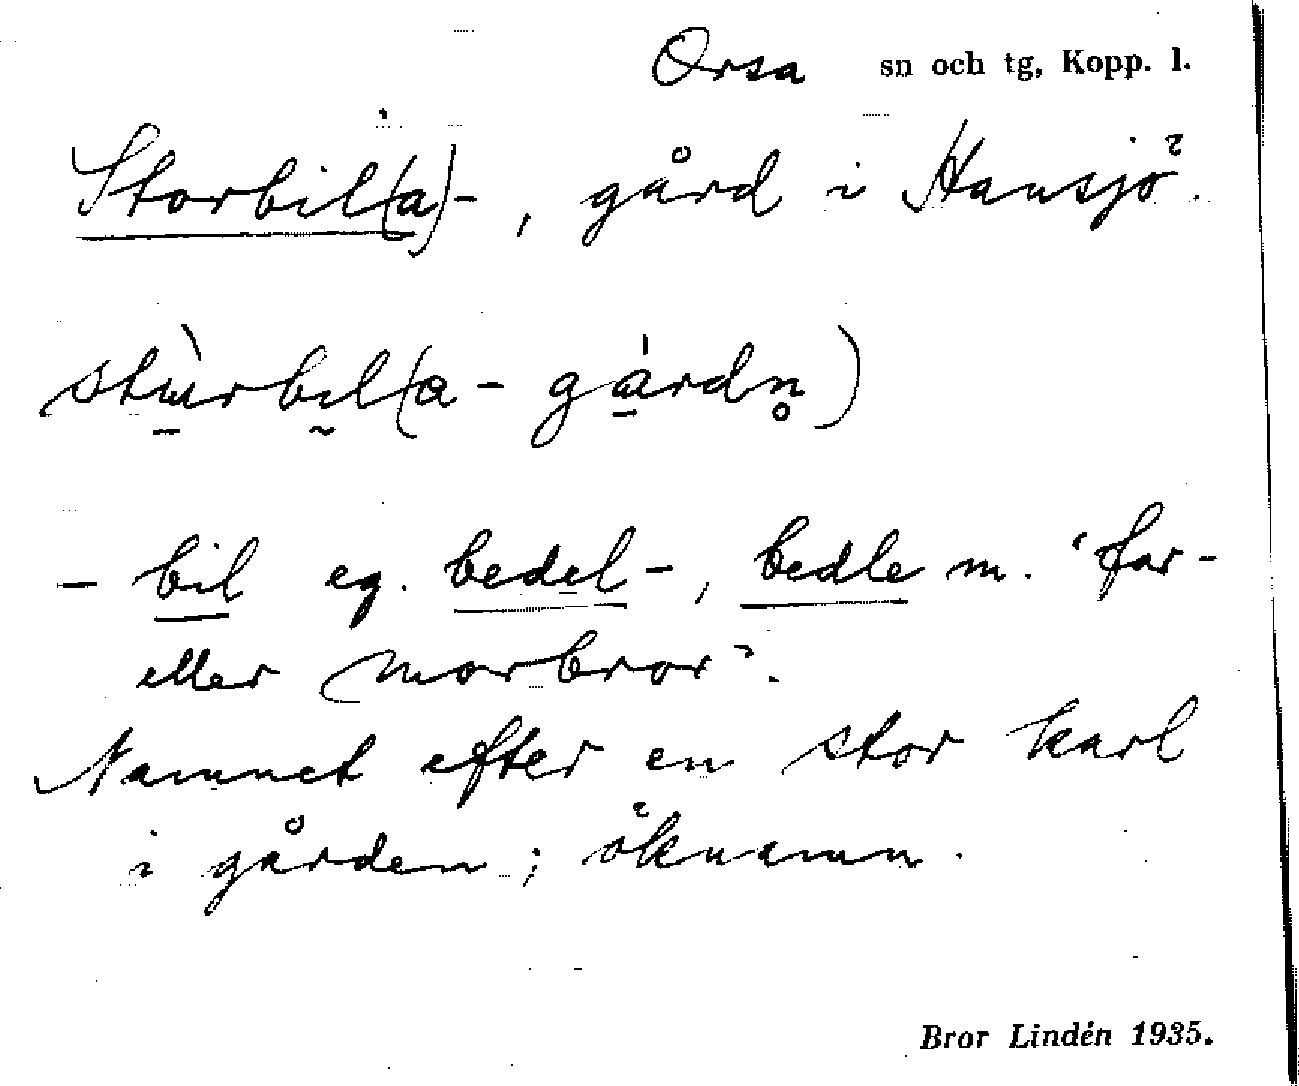 Orsa sn och tg, Kopp. l.
Storbil(a)-, gård i Hansjö.
stu̠̇rbil(a - gárdn̥)
- bil eg. bedel-, bedle m. 'far-
eller morbror'.
Namnet efter en stor karl
i gården; öknamn.
Bror Lindén 1935.